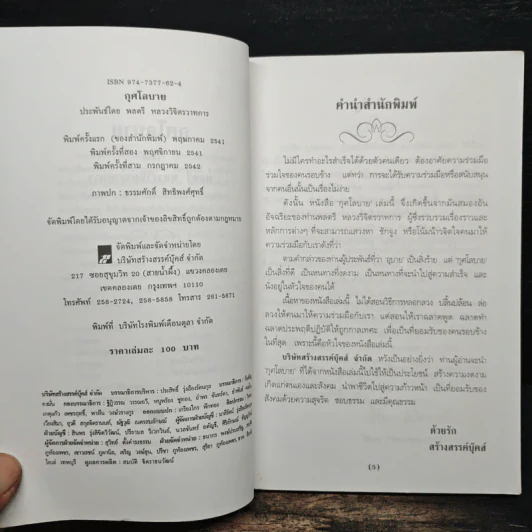 ISBN 974-7377-62-4
กุศโลบาย
ประพันธ์โดย พลตรี หลวงวิจิตรวาทการ
พิมพ์ครั้งแรก (ของสำนักพิมพ์) พฤษภาคม 2541
พิมพ์ครั้งที่สอง พฤศจิกายน 2541
พิมพ์ครั้งที่สาม กรกฎาคม 2542
ภาพปก : ธรรมศักดิ์ สิทธิพงศ์ศุทธิ์
จัดพิมพ์โดยได้รับอนุญาตจากเจ้าของลิขสิทธิ์ถูกต้องตามกฎหมาย
จัดพิมพ์และจัดจำหน่ายโดย
บริษัทสร้างสรรค์บุ๊คส์ จำกัด
217 ซอยสุขุมวิท 20 (สายน้ำผึ้ง) แขวงคลองเตย
เขตคลองเตย กรุงเทพฯ 10110
โทรศัพท์ 258-2724, 258-5858 โทรสาร 261-5671
พิมพ์ที่ บริษัทโรงพิมพ์เดือนตุลา จำกัด
ราคาเล่มละ 100 บาท
บริษัทสร้างสรรค์บุ๊คส์ จำกัด บรรณาธิการบริหาร :
คำนำสำนักพิมพ์
ไม่มีใครทำอะไรสำเร็จได้ด้วยตัวคนเดียว ต้องอาศัยความร่วมมือ
ร่วมใจของคนรอบข้าง แต่ทว่า การจะได้รับความร่วมมือหรือสนับสนุน
จากคนอื่นนั้นเป็นเรื่องไม่ง่าย
ดังนั้น หนังสือ 'กุศโลบาย' เล่มนี้ จึงเกิดขึ้นจากมันสมองอัน
อัจฉริยะของท่านพลตรี หลวงวิจิตรวาทการ ผู้ซึ่งรวบรวมเรื่องราวและ
หลักการต่างๆ ที่จะสามารถแสวงหา ชักจูง หรือโน้มน้าวจิตใจคนมาให้
ความร่วมมือกับเราดังที่ว่า
ตามคำกล่าวของท่านผู้ประพันธ์ที่ว่า 'อุบาย' เป็นสิ่งร้าย แต่ 'กุศโลบาย'
เป็นสิ่งที่ดี เป็นหนทางที่งดงาม เป็นหนทางที่จะนำไปสู่ความสำเร็จ และ
นั่งอยู่ในหัวใจของคนได้
เนื้อหาของหนังสือเล่มนี้ ไม่ได้สอนวิธีการหลอกลวง ปลิ้นปล้อน ล่อ
ลวงให้คนมาให้ความร่วมมือกับเรา แต่สอนให้เราฉลาดพูด ฉลาดทำ
ฉลาดประพฤติปฏิบัติให้ถูกกาลเทศะ เพื่อเป็นที่ยอมรับของคนรอบข้าง
ในที่สุด เพราะนี้คือหัวใจของหนังสือเล่มนี้
บริษัทสร้างสรรค์บุ๊คส์ จำกัด หวังเป็นอย่างยิ่งว่า ท่านผู้อ่านจะนำ
'กุศโลบาย' ที่ได้จากหนังสือเล่มนี้ไปใช้ให้เป็นประโยชน์ สร้างความงดงาม
เกิดแก่ตนเองและสังคม นำพาชีวิตไปสู่ความก้าวหน้า เป็นที่ยอมรับของ
สังคมด้วยความสุจริต ชอบธรรม และมีคุณธรรม
ด้วยรัก
สร้างสรรค์บุ๊คส์